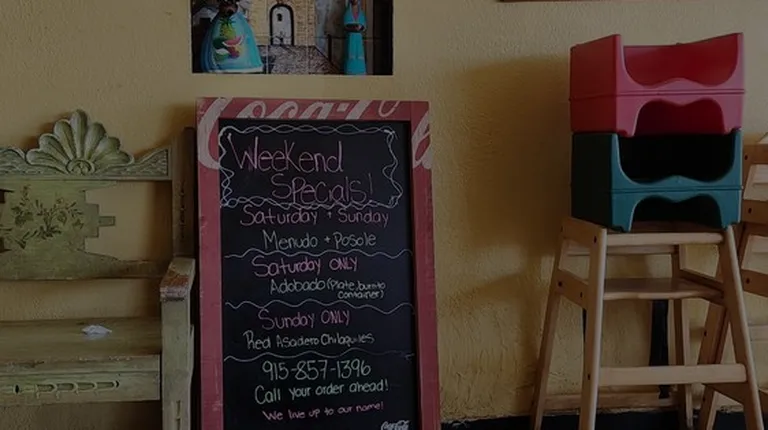 Coca-Co
Weekend
Specials!
Saturday + Sunday
Menudo + Posole
Saturday ONLY
Adobado (Plate, burrito
container)
Sunday ONLY
Red Asadero Chilaquiles
915-857-1396
Call your order ahead!
We live up to our name!
Coca-Cola